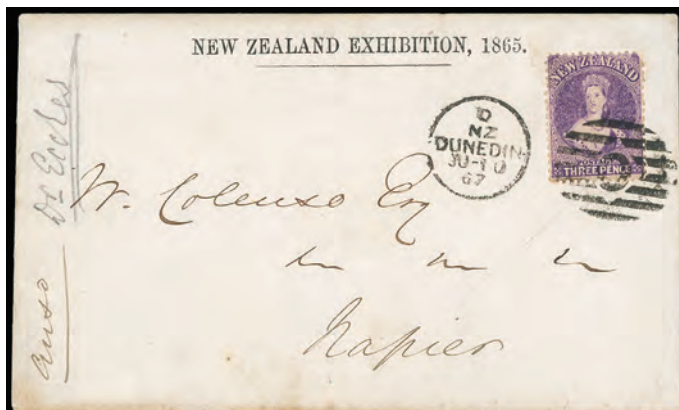 NEW ZEALAND EXHIBITION, 1865.
NEW ZEALAND
POSTAGE
THREE PENCE
D
NZ
DUNEDIN
JU-10
67
W. Colenso Esq
Napier
Dr Eccles